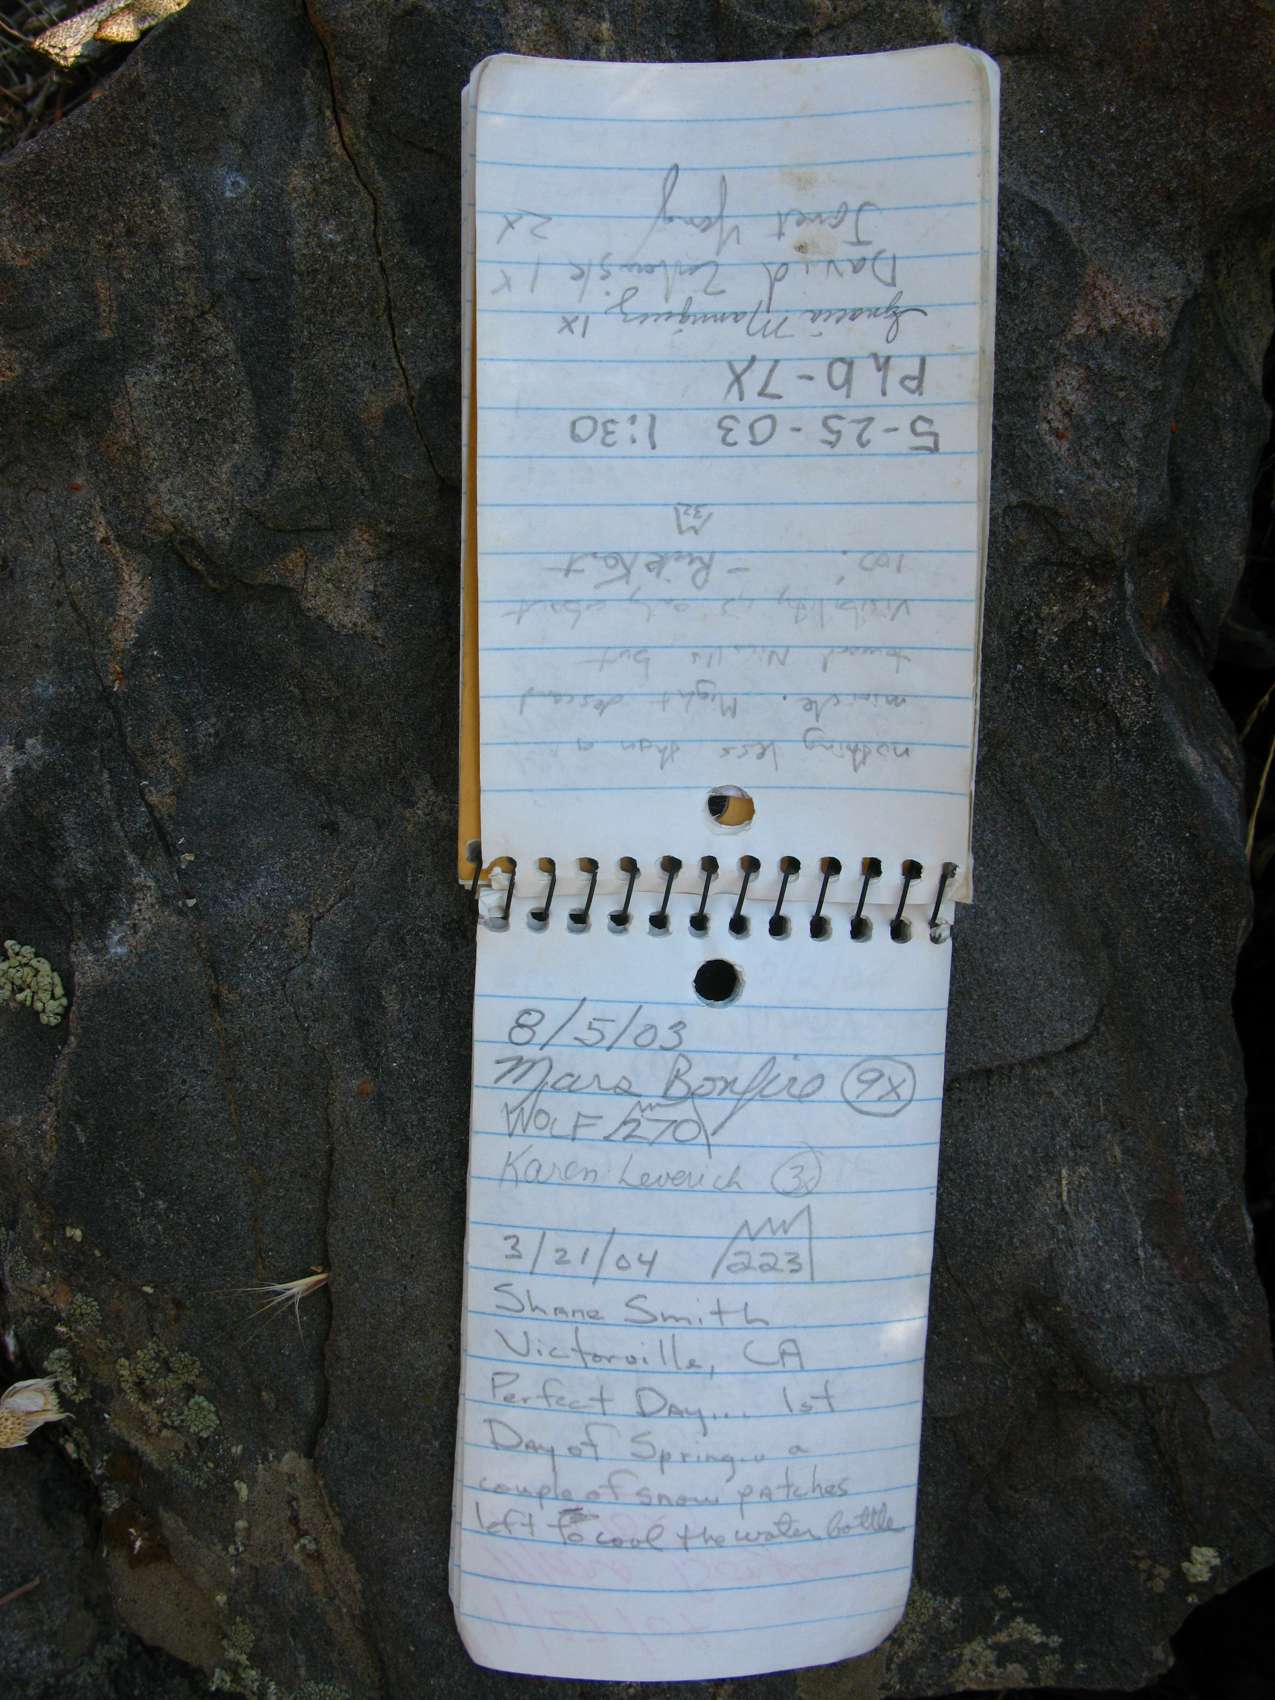 nothing less than a
miracle. Might descend
toward Nicolls but
visibility is only about
100'. - Rick Kent
32
5-25-03 1:30
PhD-7X
Ignacia Manriquez 1x
David 1x
Janet Yang 2x
8/5/03
Mars Bonfire 9x
WOLF 270
Karen Leverich 3x
3/21/04 223
Shane Smith
Victorville, CA
Perfect Day... 1st
Day of Spring.. a
couple of snow patches
left to cool the water bottle